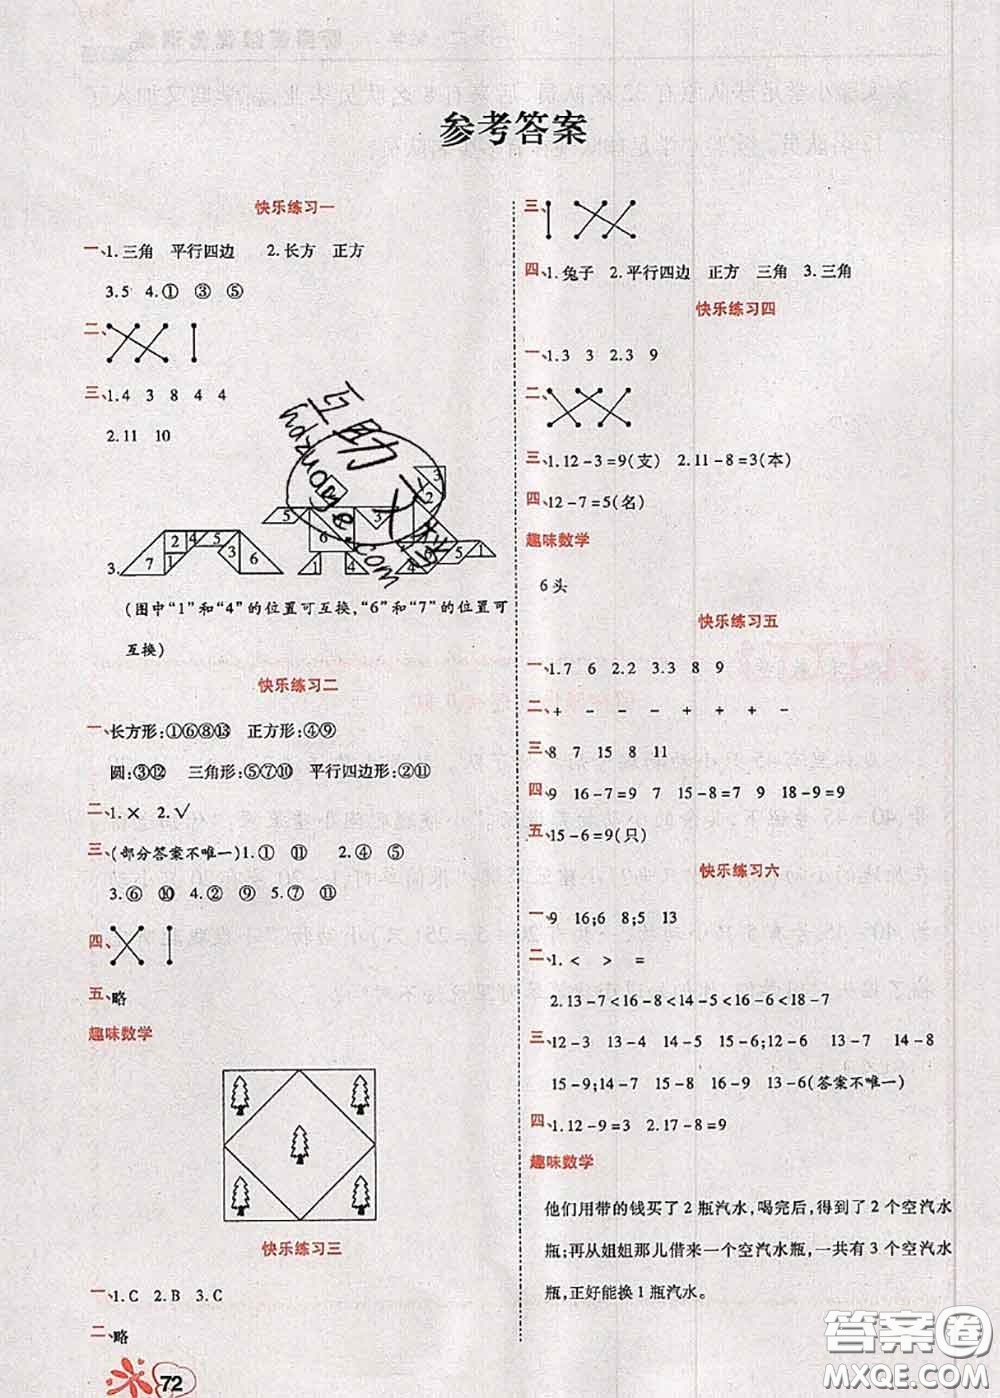 参考答案
快乐练习一
一、1.三角 平行四边 2.长方 正方
3.5 4.① ③ ⑤
二、
三、1.4 3 8 4 4
2.11 10
3.
2 4 5 7 1 3 6
5 6 3 2 4 5 1
(图中“1”和“4”的位置可互换,“6”和“7”的位置可
互换)
快乐练习二
一、长方形:①⑥⑧⑬ 正方形:④⑨
圆:③⑫ 三角形:⑤⑦⑩ 平行四边形:②⑪
二、1.× 2.√
三、(部分答案不唯一)1.① ⑪ 2.④ ⑤
3.⑥ ⑩ 4.③ ⑫ 5.① ⑪
四、
五、略
趣味数学
快乐练习三
一、1.C 2.B 3.C
二、略
72
三、
四、1.兔子 2.平行四边 正方 三角 3.三角
快乐练习四
一、1.3 3 2.3 9
二、
三、1.12-3=9(支) 2.11-8=3(本)
四、12-7=5(名)
趣味数学
6头
快乐练习五
一、1.7 6 2.2 3.3 8 9
二、+ - - - + + + -
三、8 7 15 8 11
四、9 16-7=9 7 15-8=7 8 15-7=8
五、15-6=9(只)
快乐练习六
一、9 16;6 8;5 13
二、1.< > =
2.13-7<16-8<14-5<16-6<18-7
三、12-3 13-4 14-5 15-6;12-6 13-7 14-8
15-9;14-7 15-8 16-9 13-6(答案不唯一)
四、1.12-9=3 2.17-8=9
趣味数学
他们用带的钱买了2瓶汽水,喝完后,得到了2个空汽水
瓶;再从姐姐那儿借来一个空汽水瓶,一共有3个空汽水
瓶,正好能换1瓶汽水。
答案圈
MXQE.COM